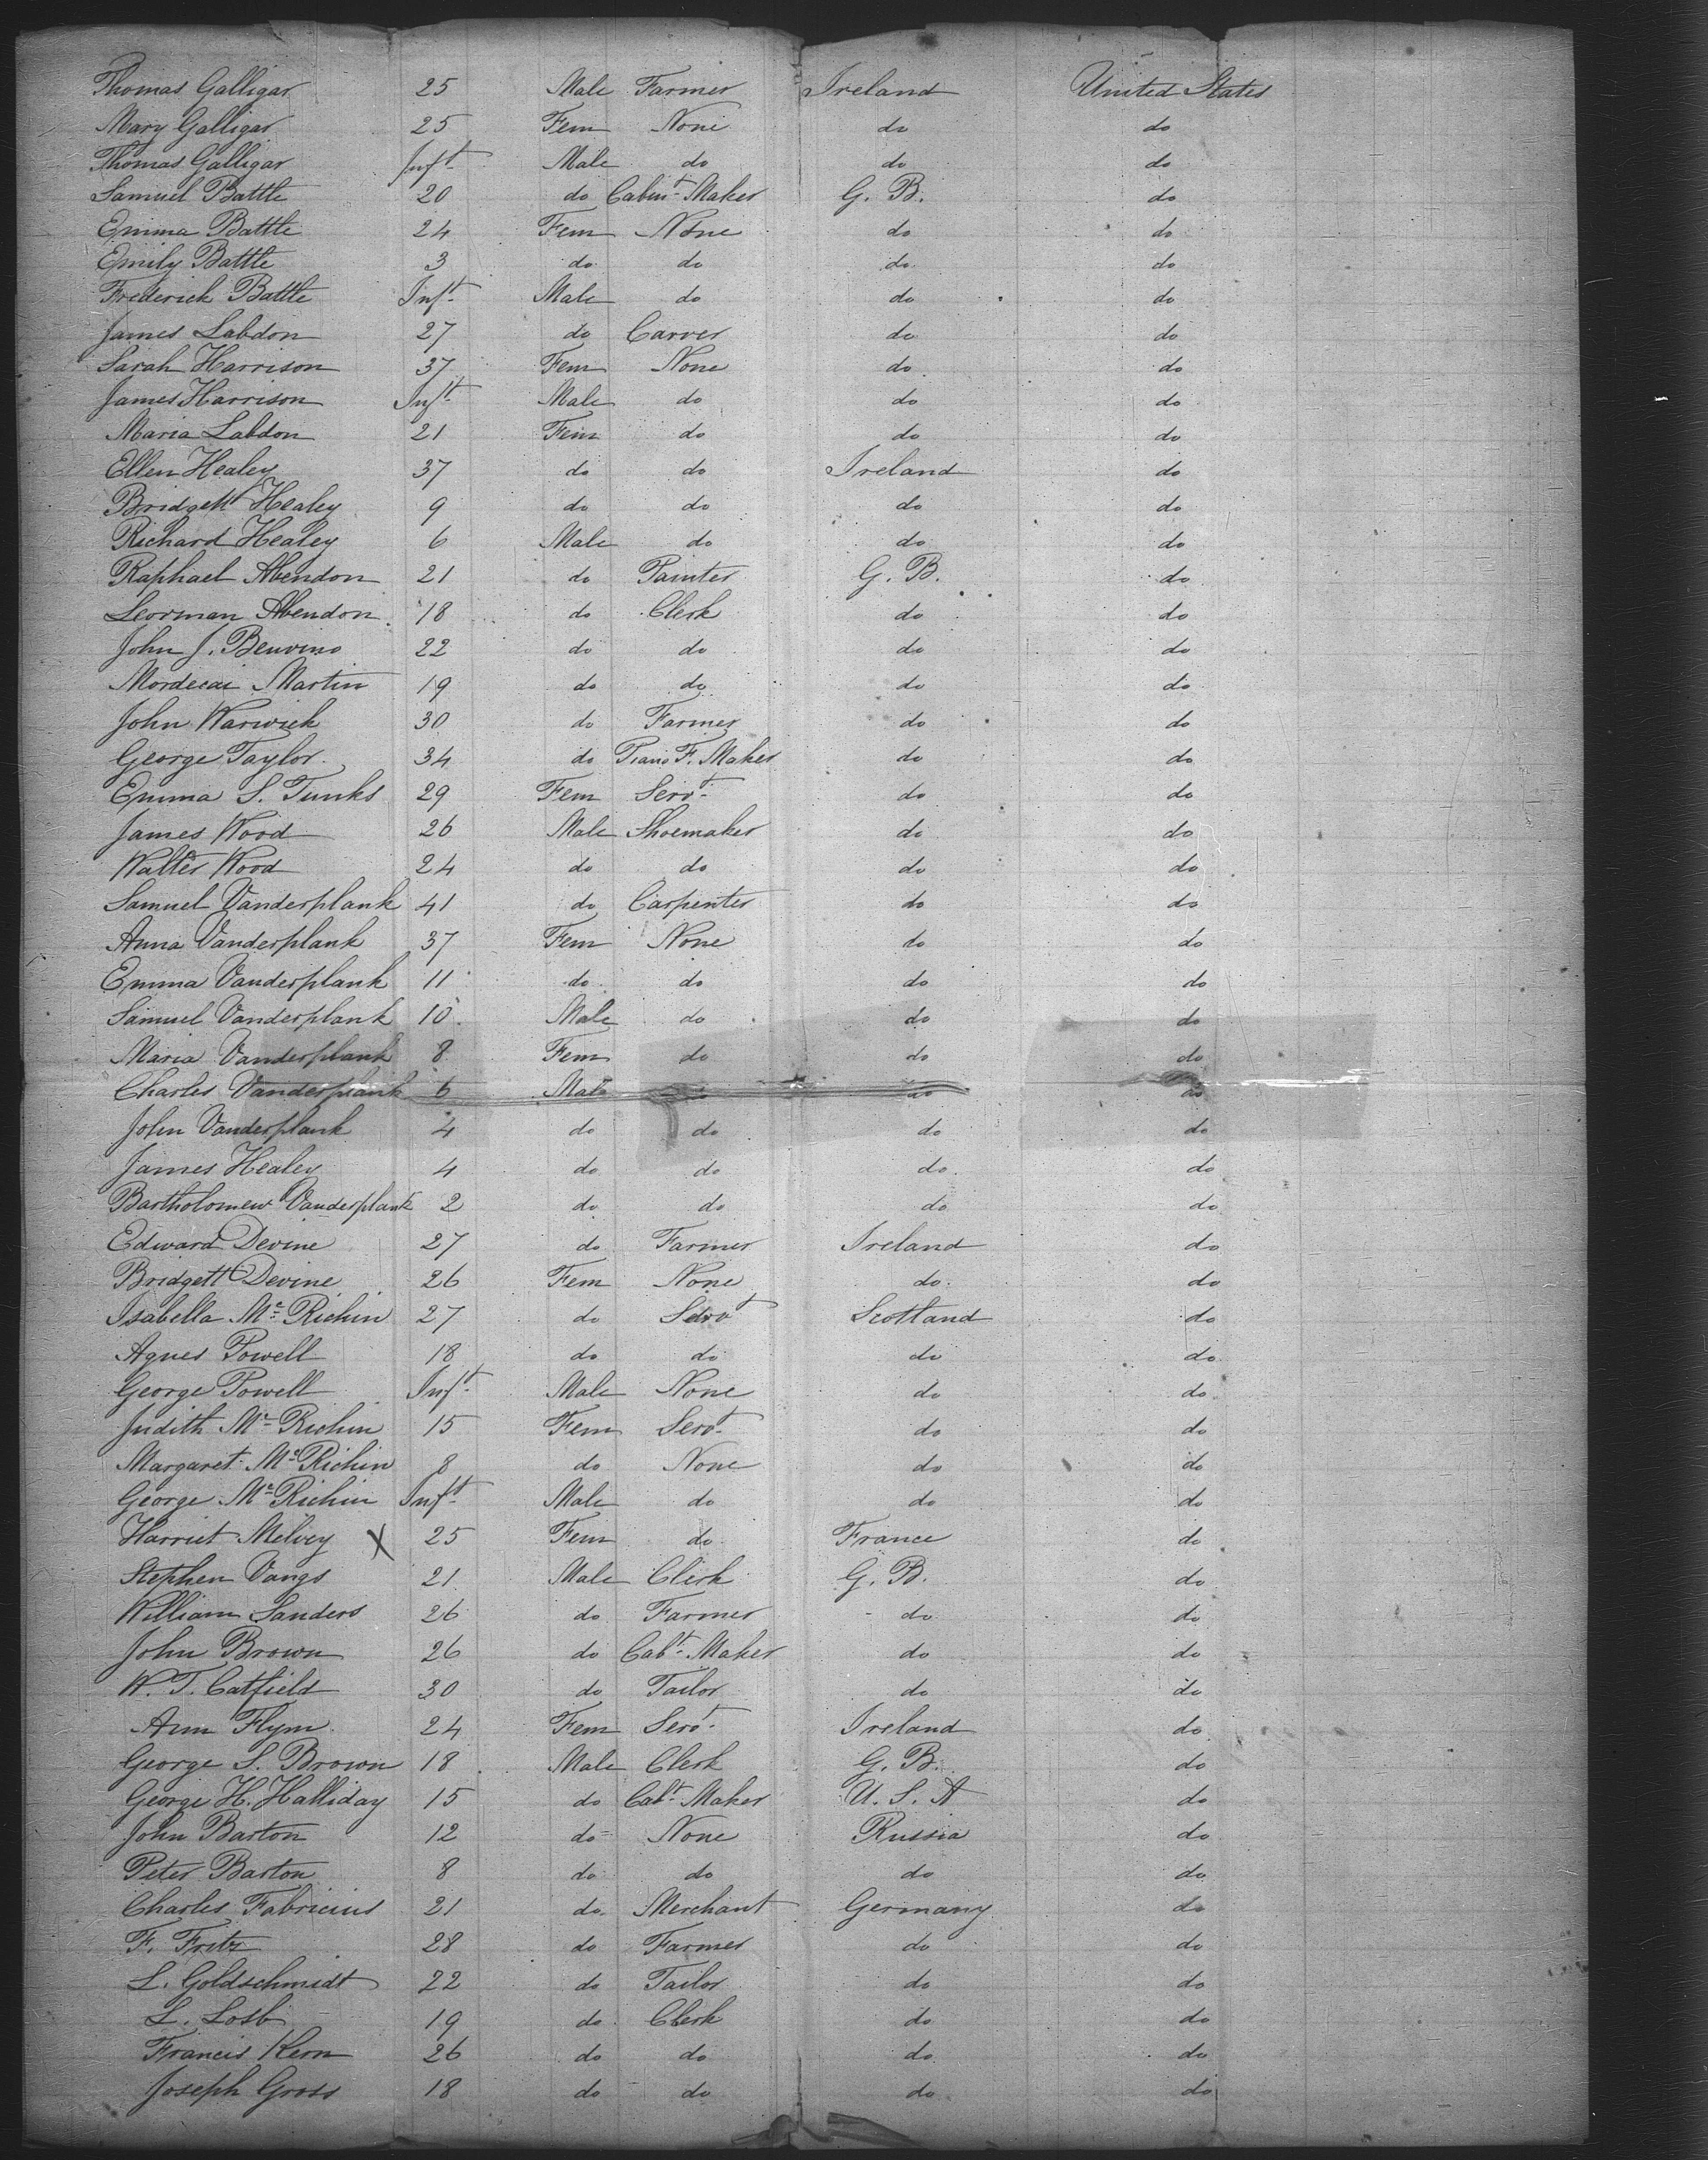 Thomas Galligar 25 Male Farmer Ireland United States
Mary Galligar 25 Fem None do do
Thomas Galligar Inft Male do do do
Samuel Battle 20 do Cabint Maker G. B. do
Emma Battle 24 Fem None do do
Emily Battle 3 do do do do
Frederick Battle Inft Male do do do
James Labdon 27 do Carver do do
Sarah Harrison 37 Fem None do do
James Harrison Inft Male do do do
Maria Labdon 21 Fem do do do
Ellen Healey 37 do do Ireland do
Bridgett Healey 9 do do do do
Richard Healey 6 Male do do do
Raphael Abendon 21 do Painter G. B. do
Leorman Abendon 18 do Clerk do do
John J. Benvino 22 do do do do
Mordecai Martin 19 do do do do
John Warwick 30 do Farmer do do
George Taylor 34 do Piano F. Maker do do
Emma S. Tunks 29 Fem Servt do do
James Wood 26 Male Shoemaker do do
Walter Wood 24 do do do do
Samuel Vanderplank 41 do Carpenter do do
Anna Vanderplank 37 Fem None do do
Emma Vanderplank 11 do do do do
Samuel Vanderplank 10 Male do do do
Maria Vanderplank 8 Fem do do do
Charles Vanderplank 6 Male do do do
John Vanderplank 4 do do do do
James Healey 4 do do do do
Bartholomew Vanderplank 2 do do do do
Edward Devine 27 do Farmer Ireland do
Bridgett Devine 26 Fem None do do
Isabella Mc Richin 27 do Servt Scotland do
Agnes Powell 18 do do do do
George Powell Inft Male None do do
Judith Mc Richin 15 Fem Servt do do
Margaret Mc Richin 8 do None do do
George Mc Richin Inft Male do do do
Harriet Melvey X 25 Fem do France do
Stephen Vangs 21 Male Clerk G. B. do
William Sanders 26 do Farmer do do
John Brown 26 do Cabt Maker do do
W. T. Catfield 30 do Tailor do do
Ann Flynn 24 Fem Servt Ireland do
George S. Brown 18 Male Clerk G. B. do
George H. Halliday 15 do Cabt Maker U. S. A do
John Barton 12 do None Russia do
Peter Barton 8 do do do do
Charles Fabricius 21 do Merchant Germany do
F. Fritz 28 do Farmer do do
L. Goldschmidt 22 do Tailor do do
L. Losb 19 do Clerk do do
Francis Kern 26 do do do do
Joseph Gross 18 do do do do